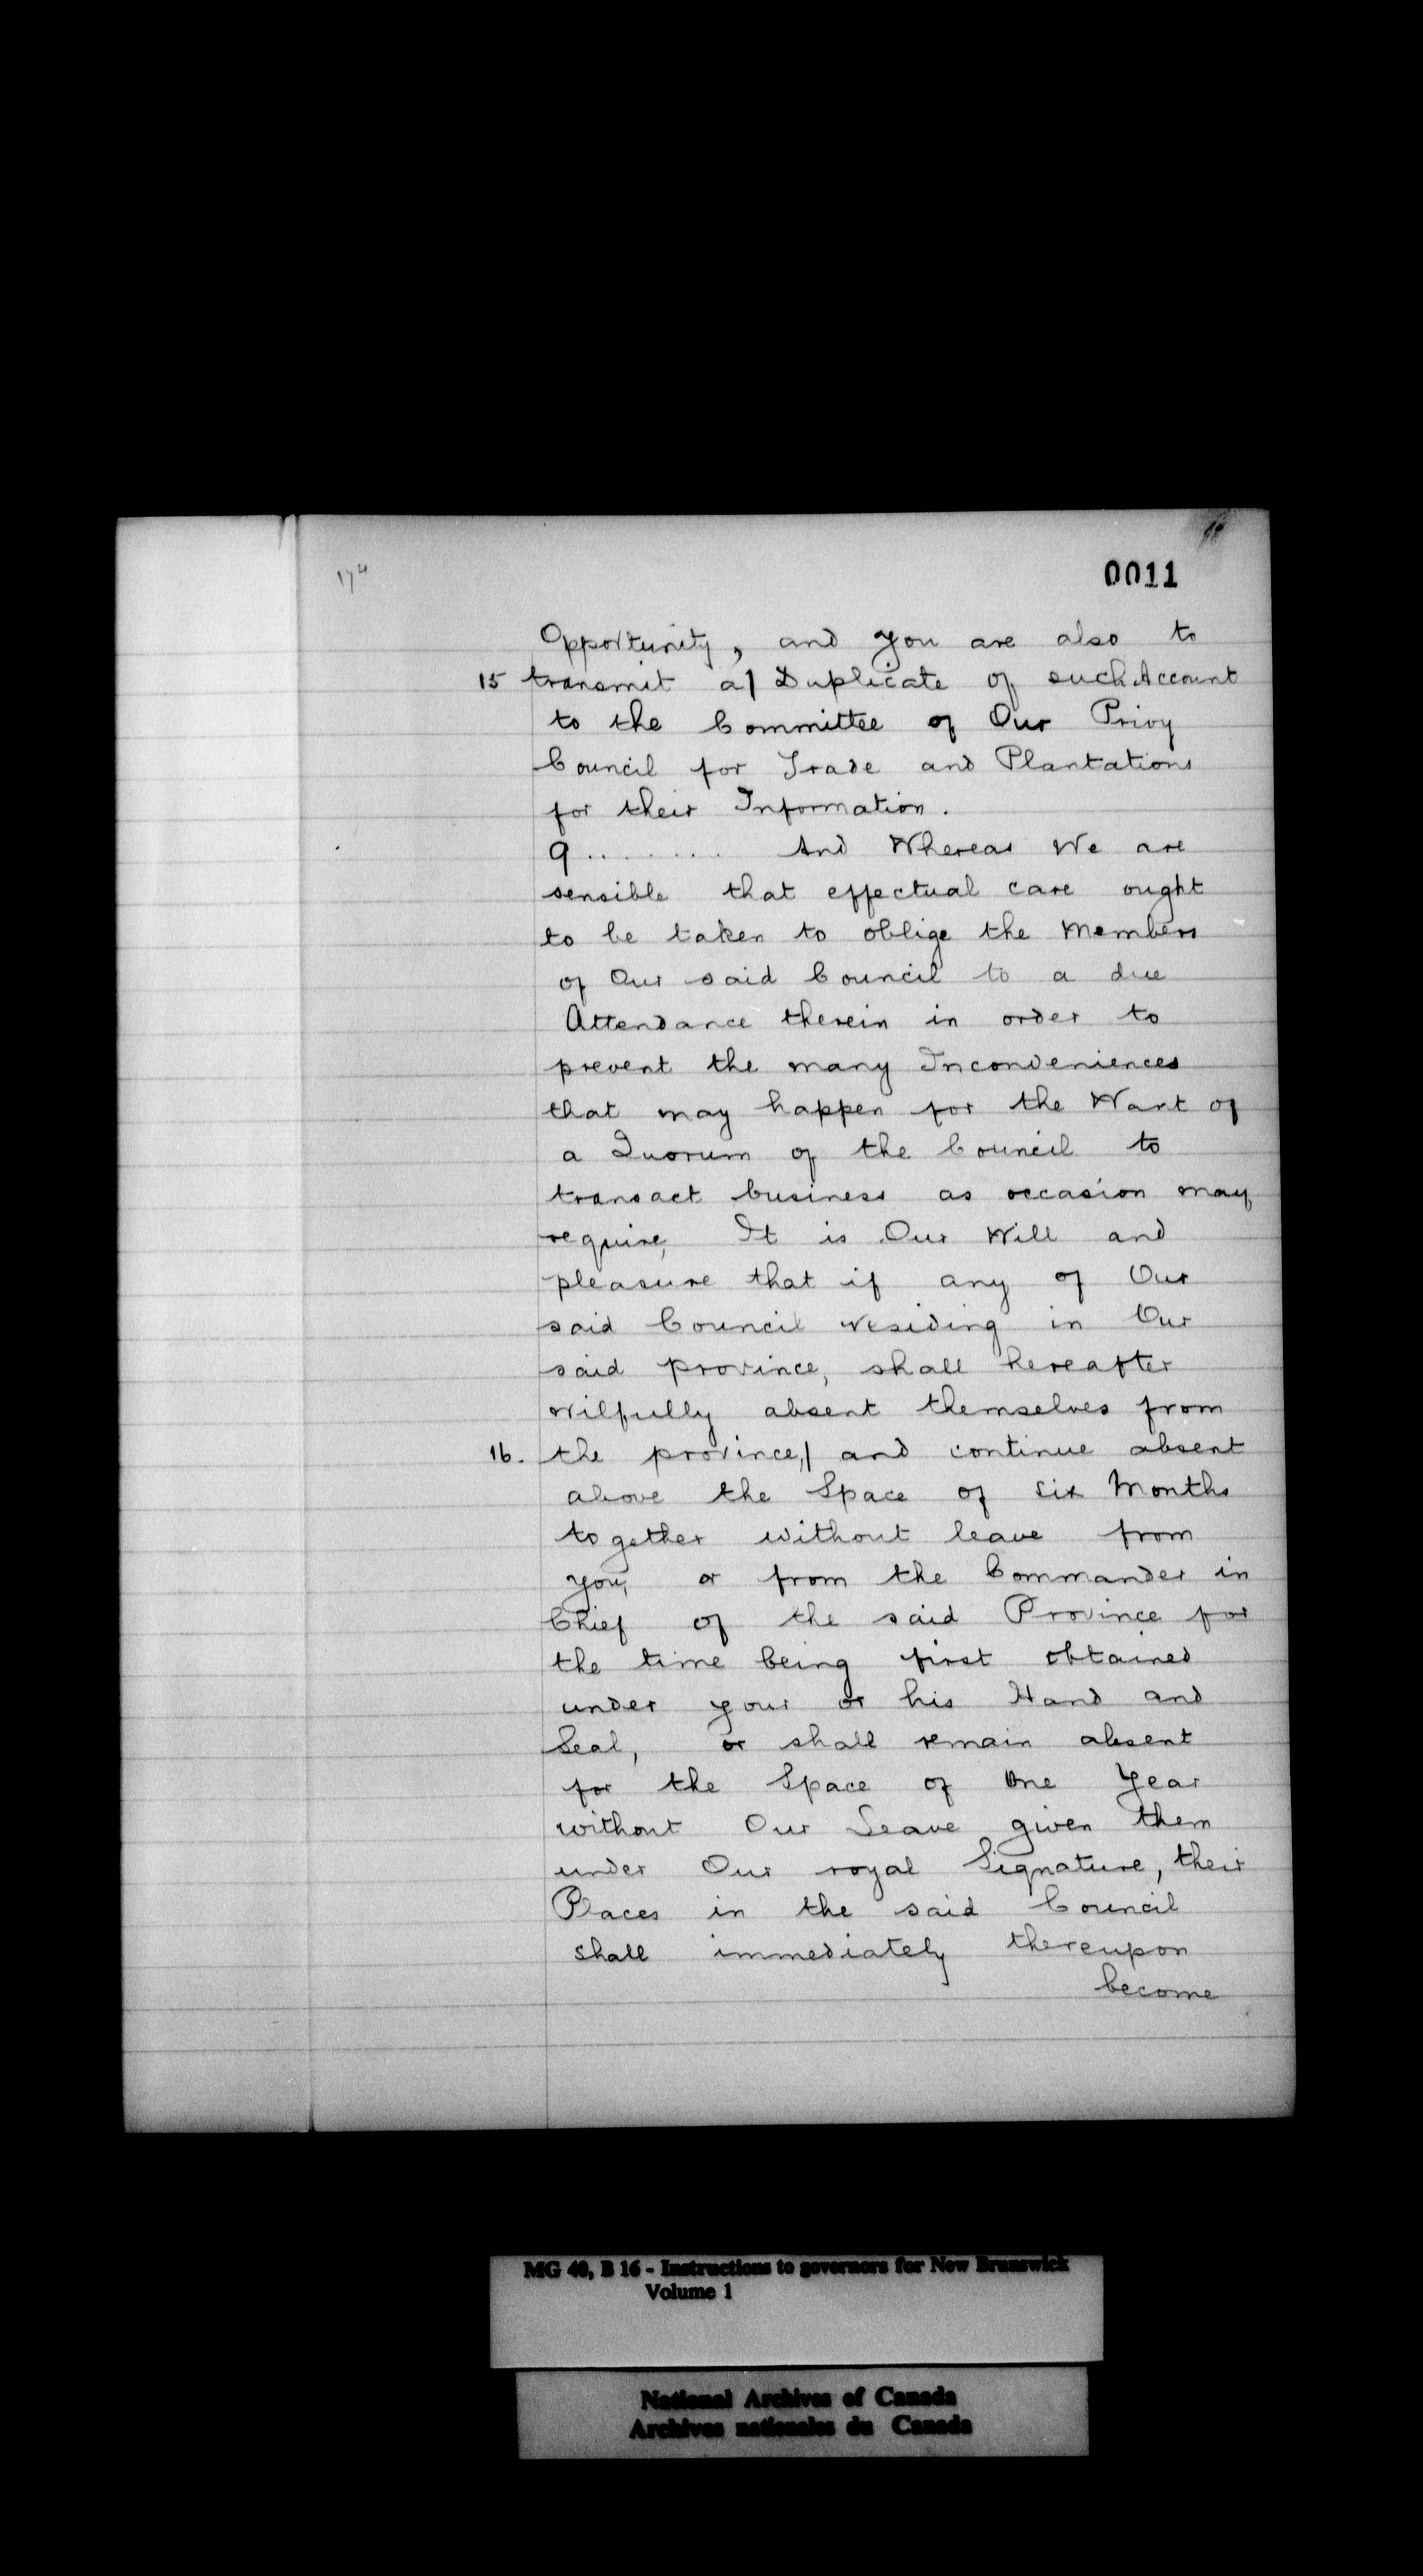 0011
Opportunity, and you are also to
15 transmit a/ Duplicate of such Account
to the Committee of Our Privy
Council for Trade and Plantations
for their Information.
9........ And Whereas We are
sensible that effectual care ought
to be taken to oblige the Members
of Our said Council to a due
Attendance therein in order to
prevent the many Inconveniences
that may happen for the Want of
a Quorum of the Council to
transact business as occasion may
require, It is Our Will and
pleasure that if any of Our
said Council residing in Our
said province, shall hereafter
wilfully absent themselves from
16. the province,/ and continue absent
above the Space of six Months
together without leave from
you, or from the Commander in
Chief of the said Province for
the time being first obtained
under your or his Hand and
Seal, or shall remain absent
for the Space of One Year
without Our Leave given them
under Our royal Signature, their
Places in the said Council
shall immediately thereupon
become
MG 40, B 16 - Instructions to governors for New Brunswick
Volume 1
National Archives of Canada
Archives nationales du Canada